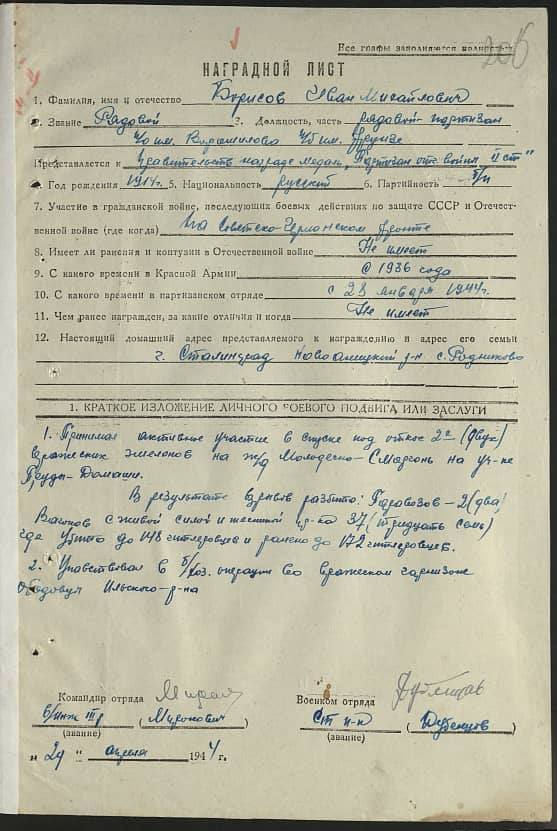 206
Все графы заполняются полностью
НАГРАДНОЙ ЛИСТ
1. Фамилия, имя и отчество Борисов Иван Михайлович
2. Звание Рядовой 3. Должность, часть рядовой-партизан
по им. Ворошилова им. Фрунзе
Представляется к правительств награде медаль „Партизан отеч. войны II ст"
4. Год рождения 1914г. 5. Национальность русский 6. Партийность б/п
7. Участие в гражданской войне, последующих боевых действиях по защите СССР и Отечест-
венной войне (где когда) На Советско-Германском фронте
8. Имеет ли ранения и контузии в Отечественной войне Не имеет
9. С какого времени в Красной Армии С 1936 года
10. С какого времени в партизанском отряде с 28 января 1944г.
11. Чем ранее награжден, за какие отличия и когда Не имеет
12. Настоящий домашний адрес представляемого к награждению и адрес его семьи
г. Сталинград р-н с. Родниково
1. КРАТКОЕ ИЗЛОЖЕНИЕ ЛИЧНОГО БОЕВОГО ПОДВИГА ИЛИ ЗАСЛУГИ
1. Принимал активное участие в спуске под откос 2х (двух)
вражеских эшелонов на ж/д Молодечно-Сморгонь на уч-ке
Пруды-Домаши.
В результате взрывов разбито: Паровозов-2 (два)
Вагонов с живой силой и техникой пр-ка 37 (тридцать семь)
где убито до 148 гитлеровцев и ранено до 172 гитлеровцев.
2. Участвовал в б/хоз. операции во вражеском гарнизоне
Ободовцы Ильского р-на
Командир отряда Военком отряда
в/инж III р (Миронович) Ст п-к (Дубенцов)
(звание) (звание)
„29" апреля 1944 г.